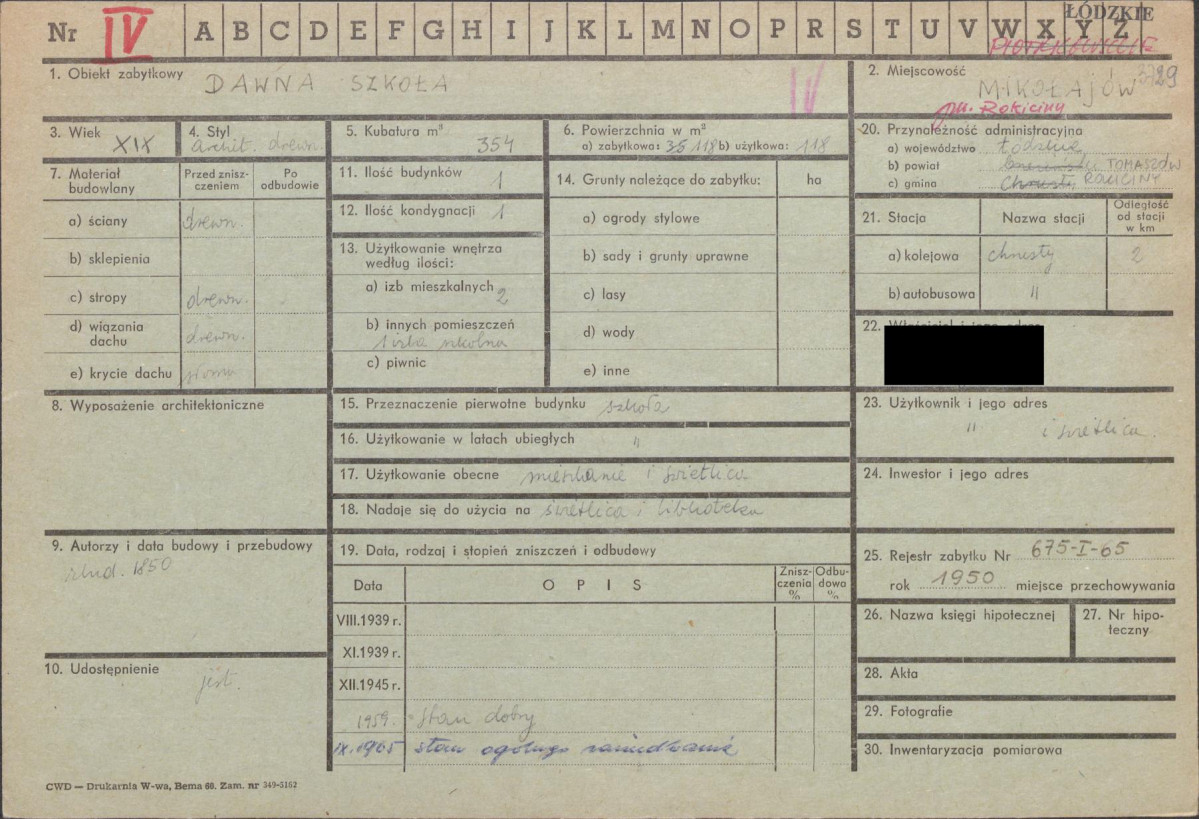 ŁÓDZKIE
Nr IV A B C D E F G H I J K L M N O P R S T U V W X Y Z
PIOTRKOWSKIE
1. Obiekt zabytkowy DAWNA SZKOŁA IV
2. Miejscowość 3729
MIKOŁAJÓW
gm. Rokiciny
3. Wiek XIX
4. Styl archit. drewn.
5. Kubatura m³ 354
6. Powierzchnia w m²
a) zabytkowa: 118 b) użytkowa: 118
7. Materiał budowlany
Przed znisz-czeniem
Po odbudowie
a) ściany drewn.
b) sklepienia
c) stropy drewn.
d) wiązania dachu drewn.
e) krycie dachu słoma
8. Wyposażenie architektoniczne
9. Autorzy i data budowy i przebudowy
zbud. 1850
10. Udostępnienie
jest.
11. Ilość budynków 1
12. Ilość kondygnacji 1
13. Użytkowanie wnętrza
według ilości:
a) izb mieszkalnych 2
b) innych pomieszczeń
1 izba szkolna
c) piwnic
14. Grunty należące do zabytku: ha
a) ogrody stylowe
b) sady i grunty uprawne
c) lasy
d) wody
e) inne
15. Przeznaczenie pierwotne budynku szkoła
16. Użytkowanie w latach ubiegłych "
17. Użytkowanie obecne mieszkanie i świetlica
18. Nadaje się do użycia na świetlica i biblioteka
19. Data, rodzaj i stopień zniszczeń i odbudowy
Data OPIS Znisz-czenia % Odbu-dowa %
VIII.1939 r.
XI.1939 r.
XII.1945 r.
1959. stan dobry
IX.1965 stan ogólnego zaniedbania
20. Przynależność administracyjna
a) województwo Łódzkie
b) powiat TOMASZÓW
c) gmina Chrusty ROKICINY
21. Stacja Nazwa stacji Odległość od stacji w km
a) kolejowa chrusty 2
b) autobusowa "
22.
23. Użytkownik i jego adres
" i świetlica.
24. Inwestor i jego adres
25. Rejestr zabytku Nr 675-I-65
rok 1950 miejsce przechowywania
26. Nazwa księgi hipotecznej
27. Nr hipo-teczny
28. Akta
29. Fotografie
30. Inwentaryzacja pomiarowa
CWD — Drukarnia W-wa, Bema 60. Zam. nr 349-5162